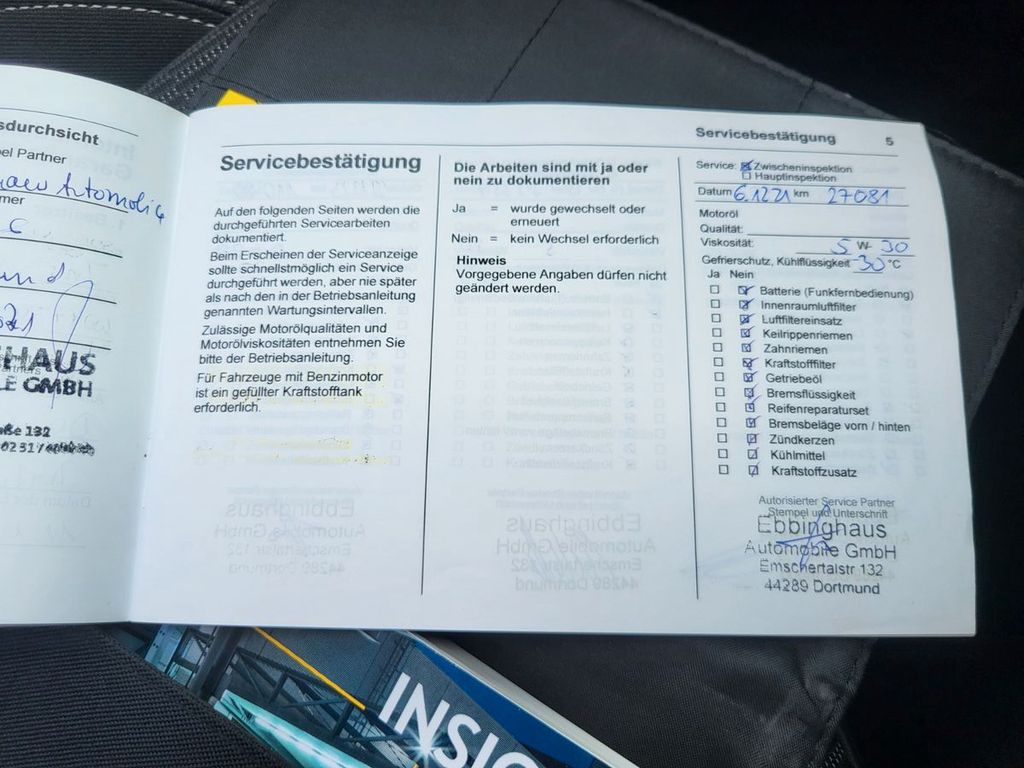 sdurchsicht
el Partner
Automobile
mer
HAUS
E GMBH
aße 132
0231/
Servicebestätigung 5
Servicebestätigung
Auf den folgenden Seiten werden die
durchgeführten Servicearbeiten
dokumentiert.
Beim Erscheinen der Serviceanzeige
sollte schnellstmöglich ein Service
durchgeführt werden, aber nie später
als nach den in der Betriebsanleitung
genannten Wartungsintervallen.
Zulässige Motorölqualitäten und
Motorölviskositäten entnehmen Sie
bitte der Betriebsanleitung.
Für Fahrzeuge mit Benzinmotor
ist ein gefüllter Kraftstofftank
erforderlich.
Die Arbeiten sind mit ja oder
nein zu dokumentieren
Ja = wurde gewechselt oder
erneuert
Nein = kein Wechsel erforderlich
Hinweis
Vorgegebene Angaben dürfen nicht
geändert werden.
Service: Zwischeninspektion
Hauptinspektion
Datum 6.12.21 km 27081
Motoröl
Qualität:
Viskosität: 5 W- 30
Gefrierschutz, Kühlflüssigkeit 30 °C
Ja Nein
Batterie (Funkfernbedienung)
Innenraumluftfilter
Luftfiltereinsatz
Keilrippenriemen
Zahnriemen
Kraftstofffilter
Getriebeöl
Bremsflüssigkeit
Reifenreparaturset
Bremsbeläge vorn / hinten
Zündkerzen
Kühlmittel
Kraftstoffzusatz
Autorisierter Service Partner
Stempel und Unterschrift
Ebbinghaus
Automobile GmbH
Emschertalstr 132
44289 Dortmund
INSIG